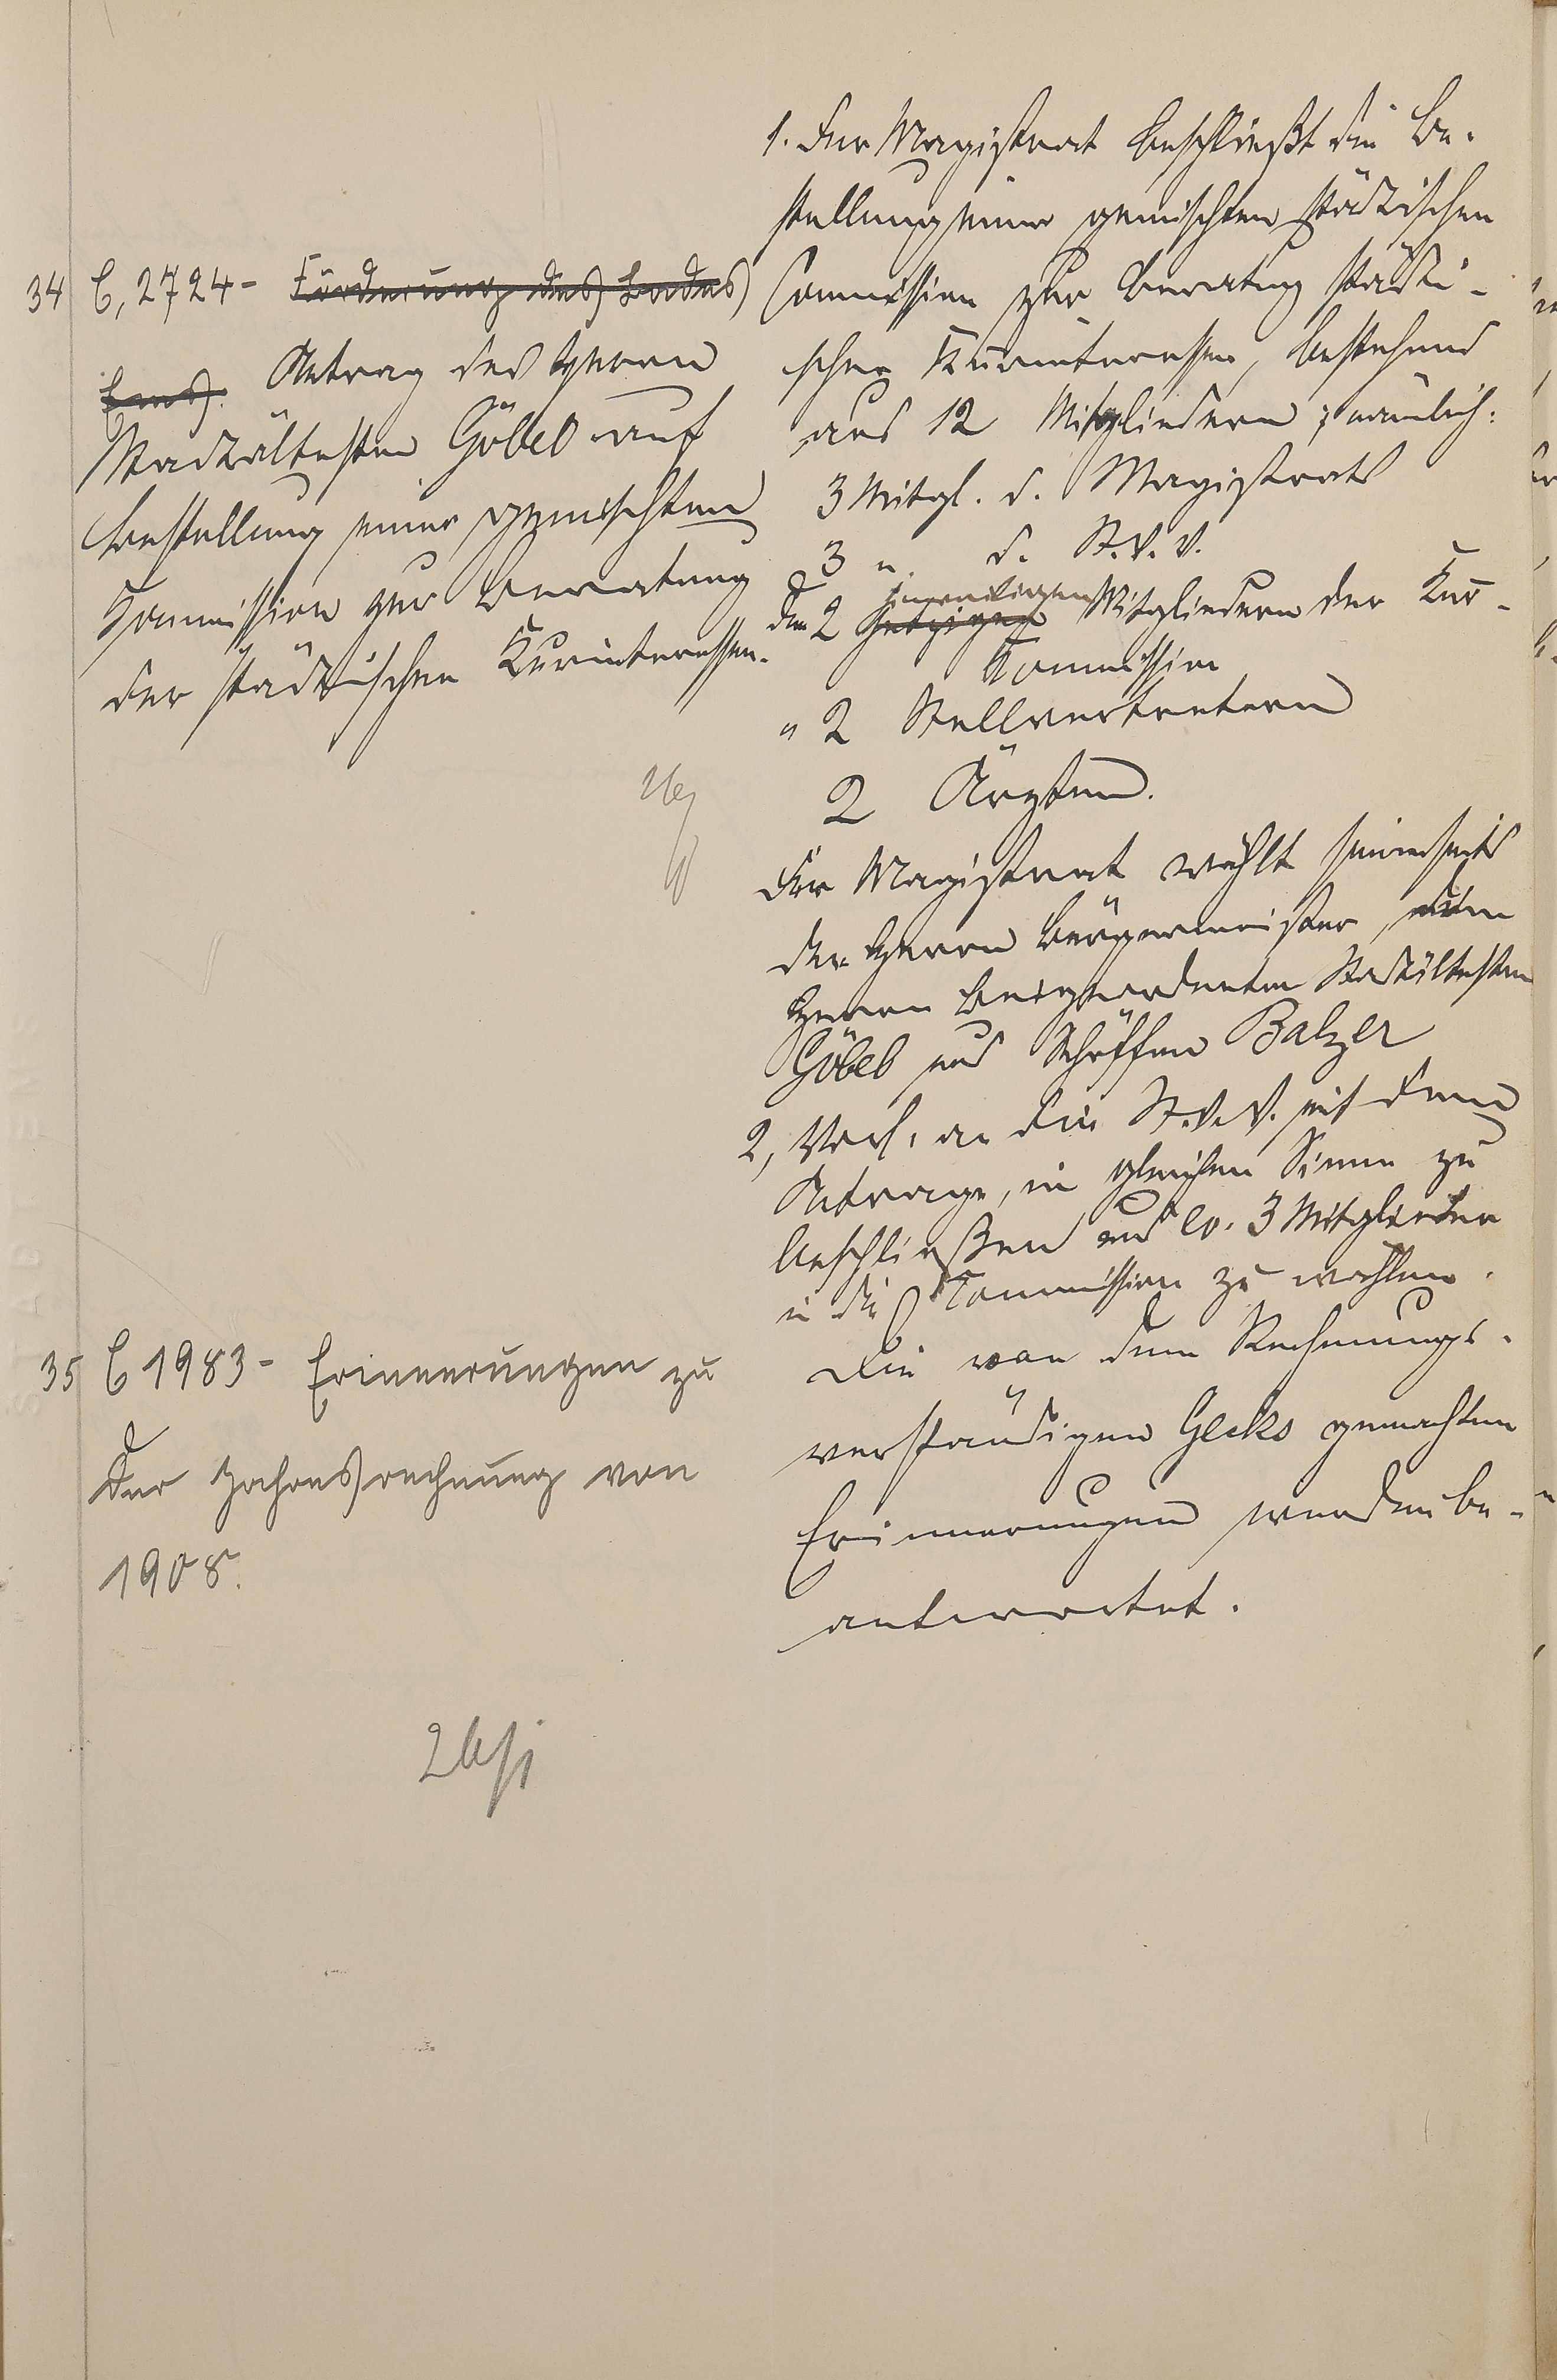 34 C, 2724 - Förderung des Bades
Ems. Antrag des Herrn
Stadtältesten Göbel auf
Bestellung einer gemischten
Kommission zur Beratung
der städtischen Kurinteressen.
1. Der Magistrat beschließt die Be-
stellung einer gemischten städtischen
Commission zur Beratung städti-
scher Kurinteressen, bestehend
aus 12 Mitgliedern, nämlich:
3 Mitgl. d. Magistrats
3 " d. St.V.V.
den 2 jeweiligen Mitgliedern der Kur-
kommission
" 2 Stellvertretern
2 Ärzten.
Der Magistrat wählt seinerseits
den Herrn Bürgermeister, den
Herrn Beigeordneten Stadtältesten
Göbel und Schöffen Balzer
2, Vorl. an die St.V.V. mit dem
Antrage, in gleichem Sinne zu
beschließen und ev. 3 Mitglieder
in die Kommission zu wählen.
35 C 1983 - Erinnerungen zu
der Jahresrechnung von
1908.
Die von dem Rechnungs-
verständigen Gecks gemachten
Erinnerungen werden be-
antwortet.
26/1